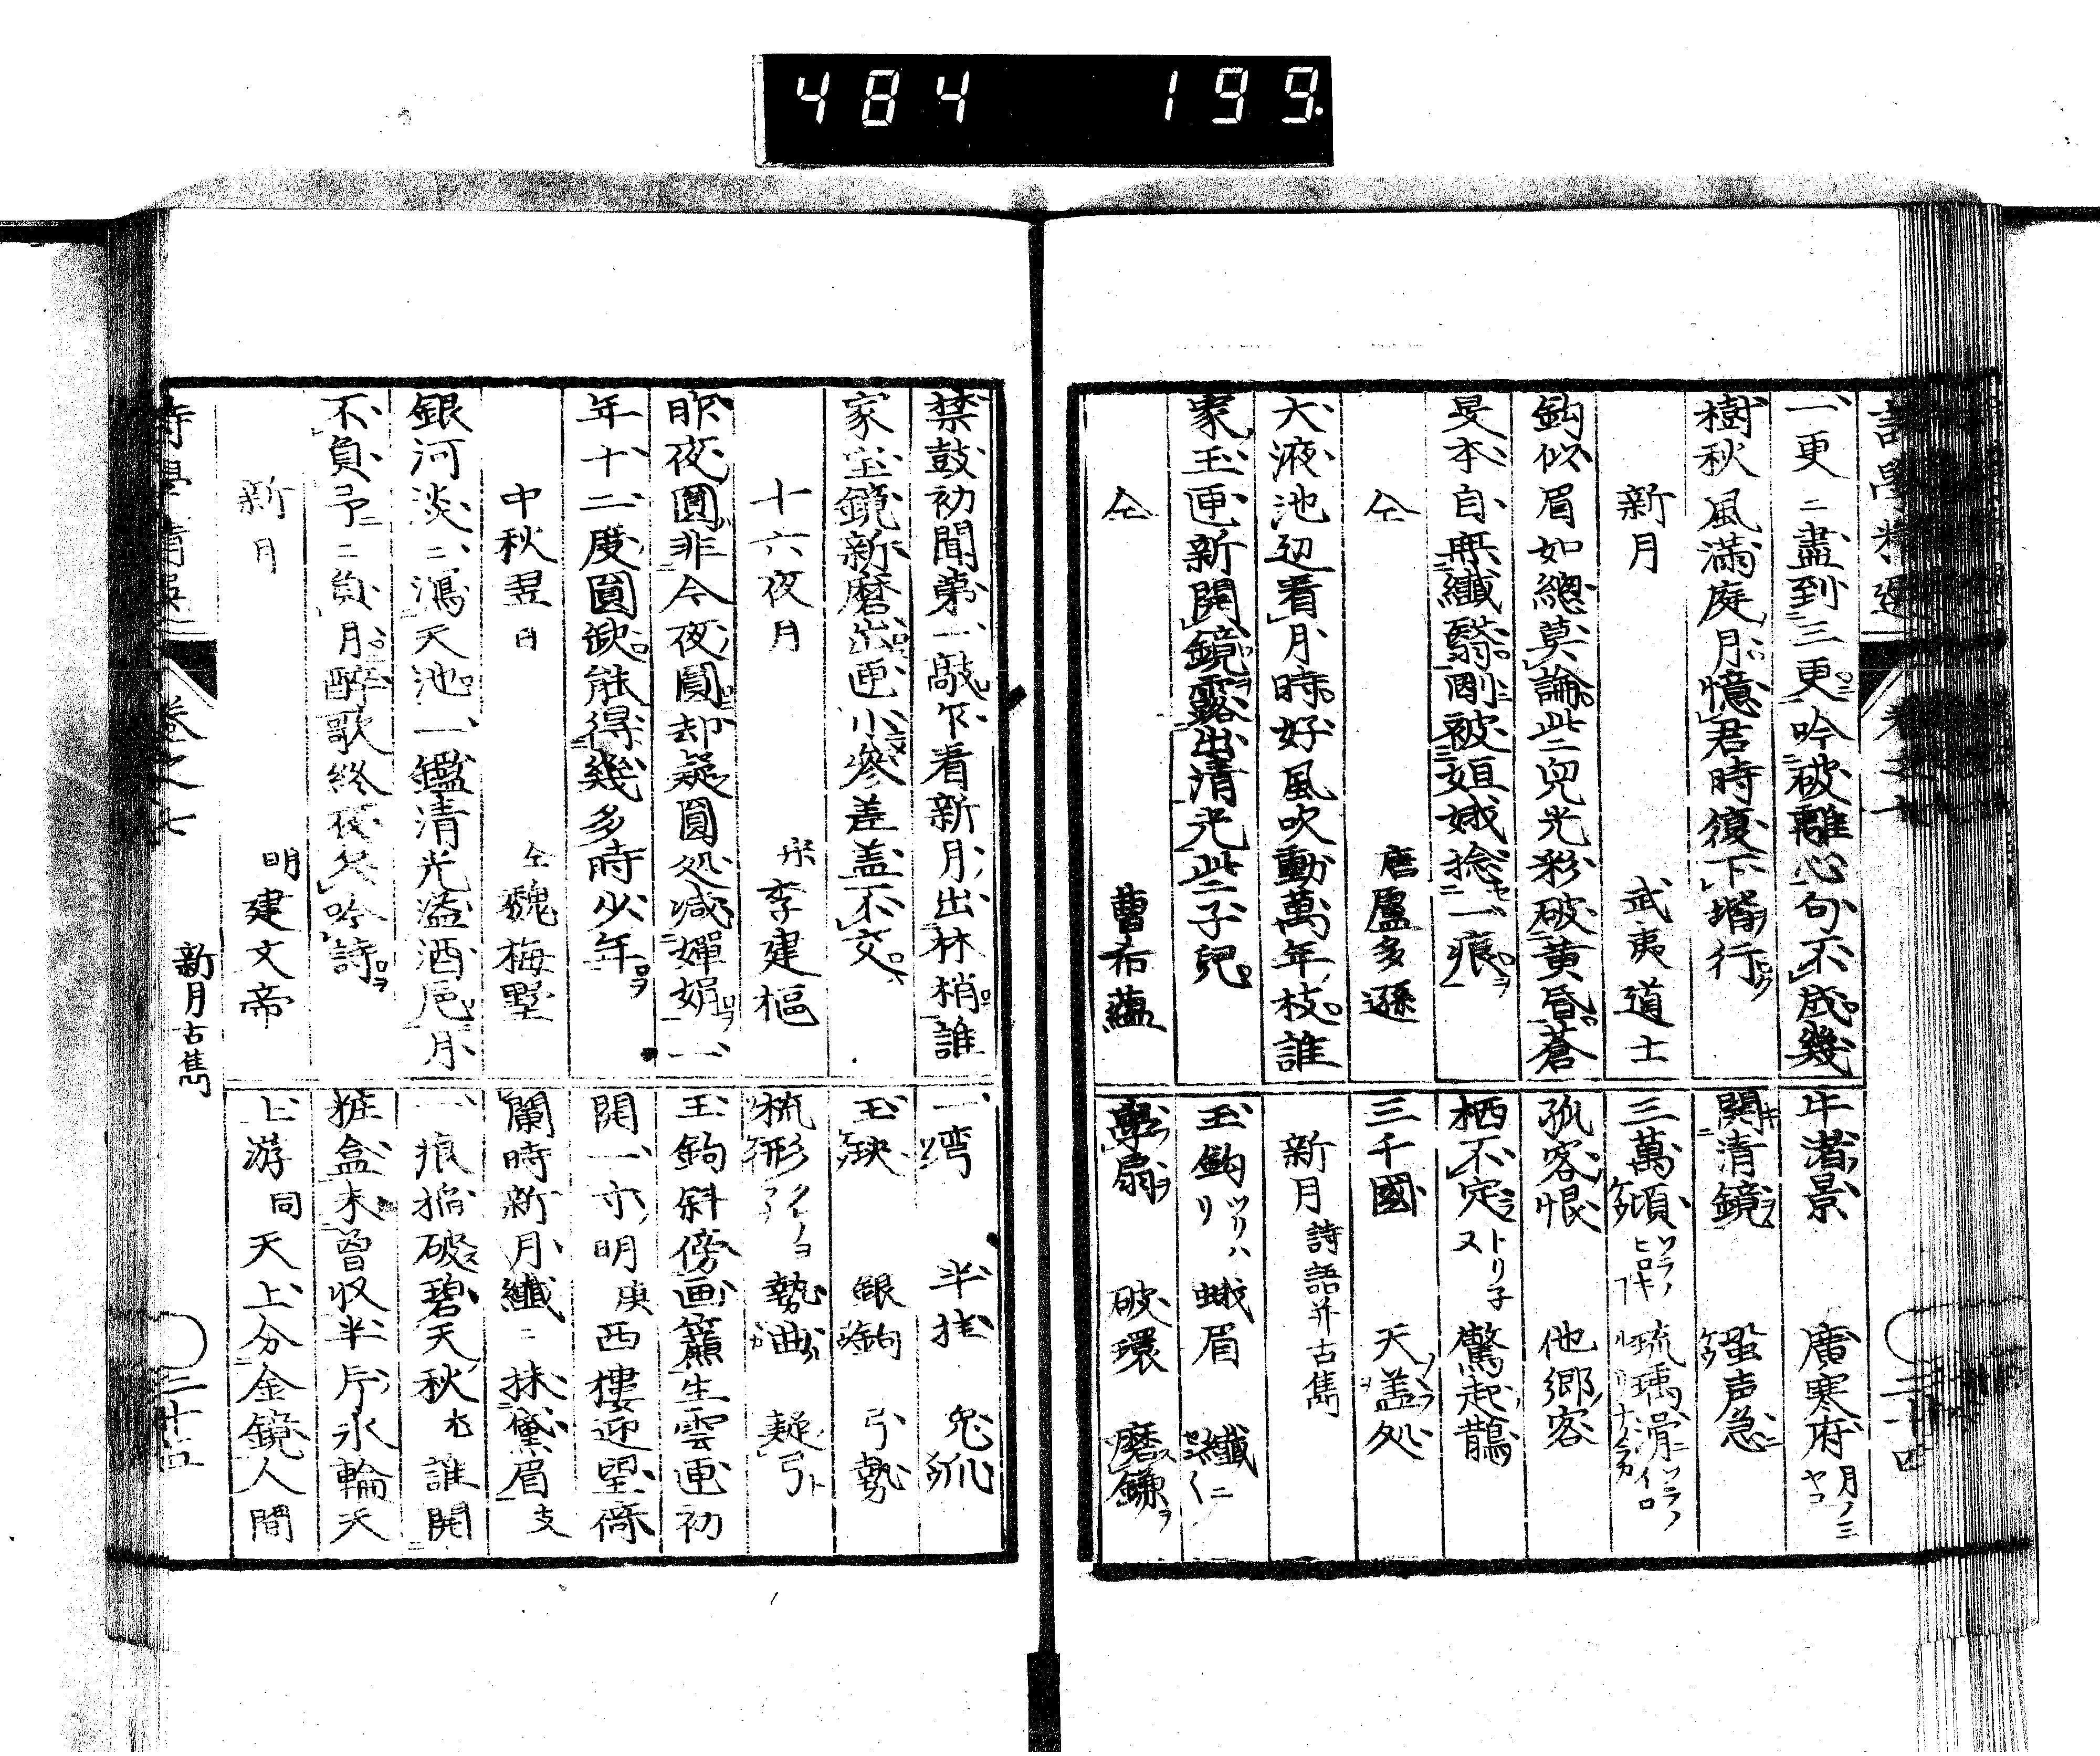 484 199.
一更〻盡到三更吟被離心句不成幾
樹秋風滿庭月憶君時復下堦行
新月 武夷道士
鈎似眉如總莫論些兒光彩破黄昏蒼
旻本自無纎翳剛被姮娥捻一痕
仝 唐盧多遜
大液池辺看月時好風吹動萬年枝誰
家玉匣新開鏡露出清光些子兒
仝 曹布蘊
牛渚景 廣寒府月ノミヤコ
開清鏡 蛩声急
三萬頃 琉璃滑
孤客恨 他郷客
栖不定 驚起鵲
三千國 天盖処
新月 詩語并古雋
玉鈎 蛾眉 纎〻
學扇 破環 磨鎌
禁鼓初聞第一敲乍看新月出林梢誰
家宝鏡新磨出匣小参差盖不交
十六夜月 宋李建樞
昨夜圓非今夜圓却疑圓処减嬋娟一
年十二度圓缺能得幾多時少年
中秋翌日 仝魏梅墅
銀河淡〻瀉天池一鑑清光溢酒卮月
不負予〻負月醉歌終夜久吟詩
新月 明建文帝
一湾 半挂 兔
玉玦 銀鈎 弓勢
梳形 勢曲 疑弓
玉鈎斜傍画簷生雲匣初
開一寸明庚西樓迎望
闌時新月纎〻抹黛眉支
一痕掐破碧天秋尤誰開
粧盒未曽収半片氷輪天
上游同天上分金鏡人間
卷之七 新月古雋